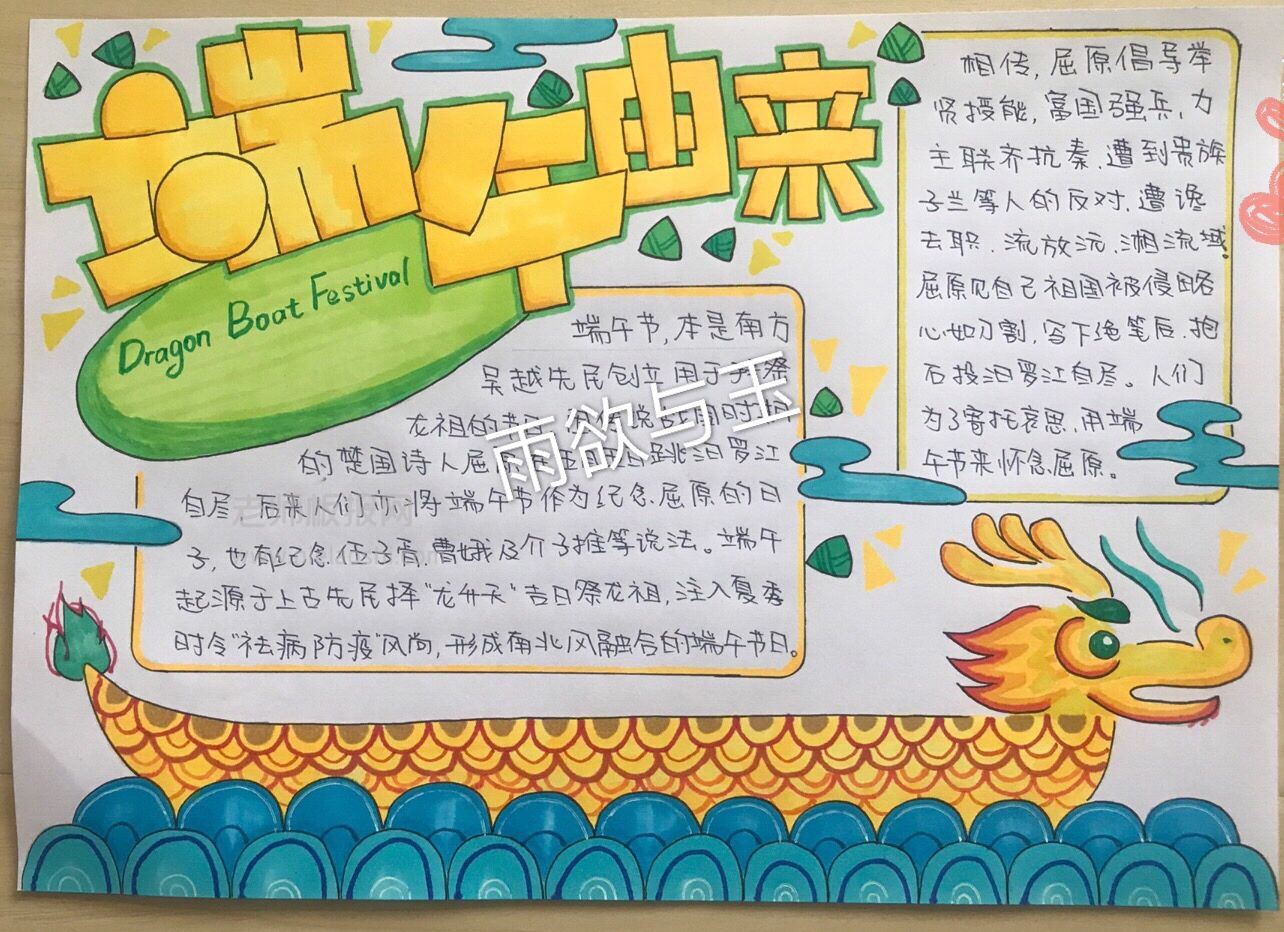 端午由来
Dragon Boat Festival
端午节,本是南方
吴越先民创立用于
龙祖的节日
的楚国诗人屈原 跳汨罗江
自尽 后来人们亦将端午节作为纪念屈原的日
子,也有纪念伍子胥.曹娥及介子推等说法。端午
起源于上古先民择“龙升天”吉日祭龙祖,注入夏季
时令“祛病防疫”风尚,形成南北风融合的端午节日。
相传,屈原倡导举
贤授能,富国强兵,力
主联齐抗秦.遭到贵族
子兰等人的反对.遭谗
去职.流放沅.湘流域.
屈原见自己祖国被侵略
心如刀割,写下绝笔后.抱
石投汨罗江自尽。人们
为了寄托哀思,用端
午节来怀念屈原。
雨欲与玉
老师板报网